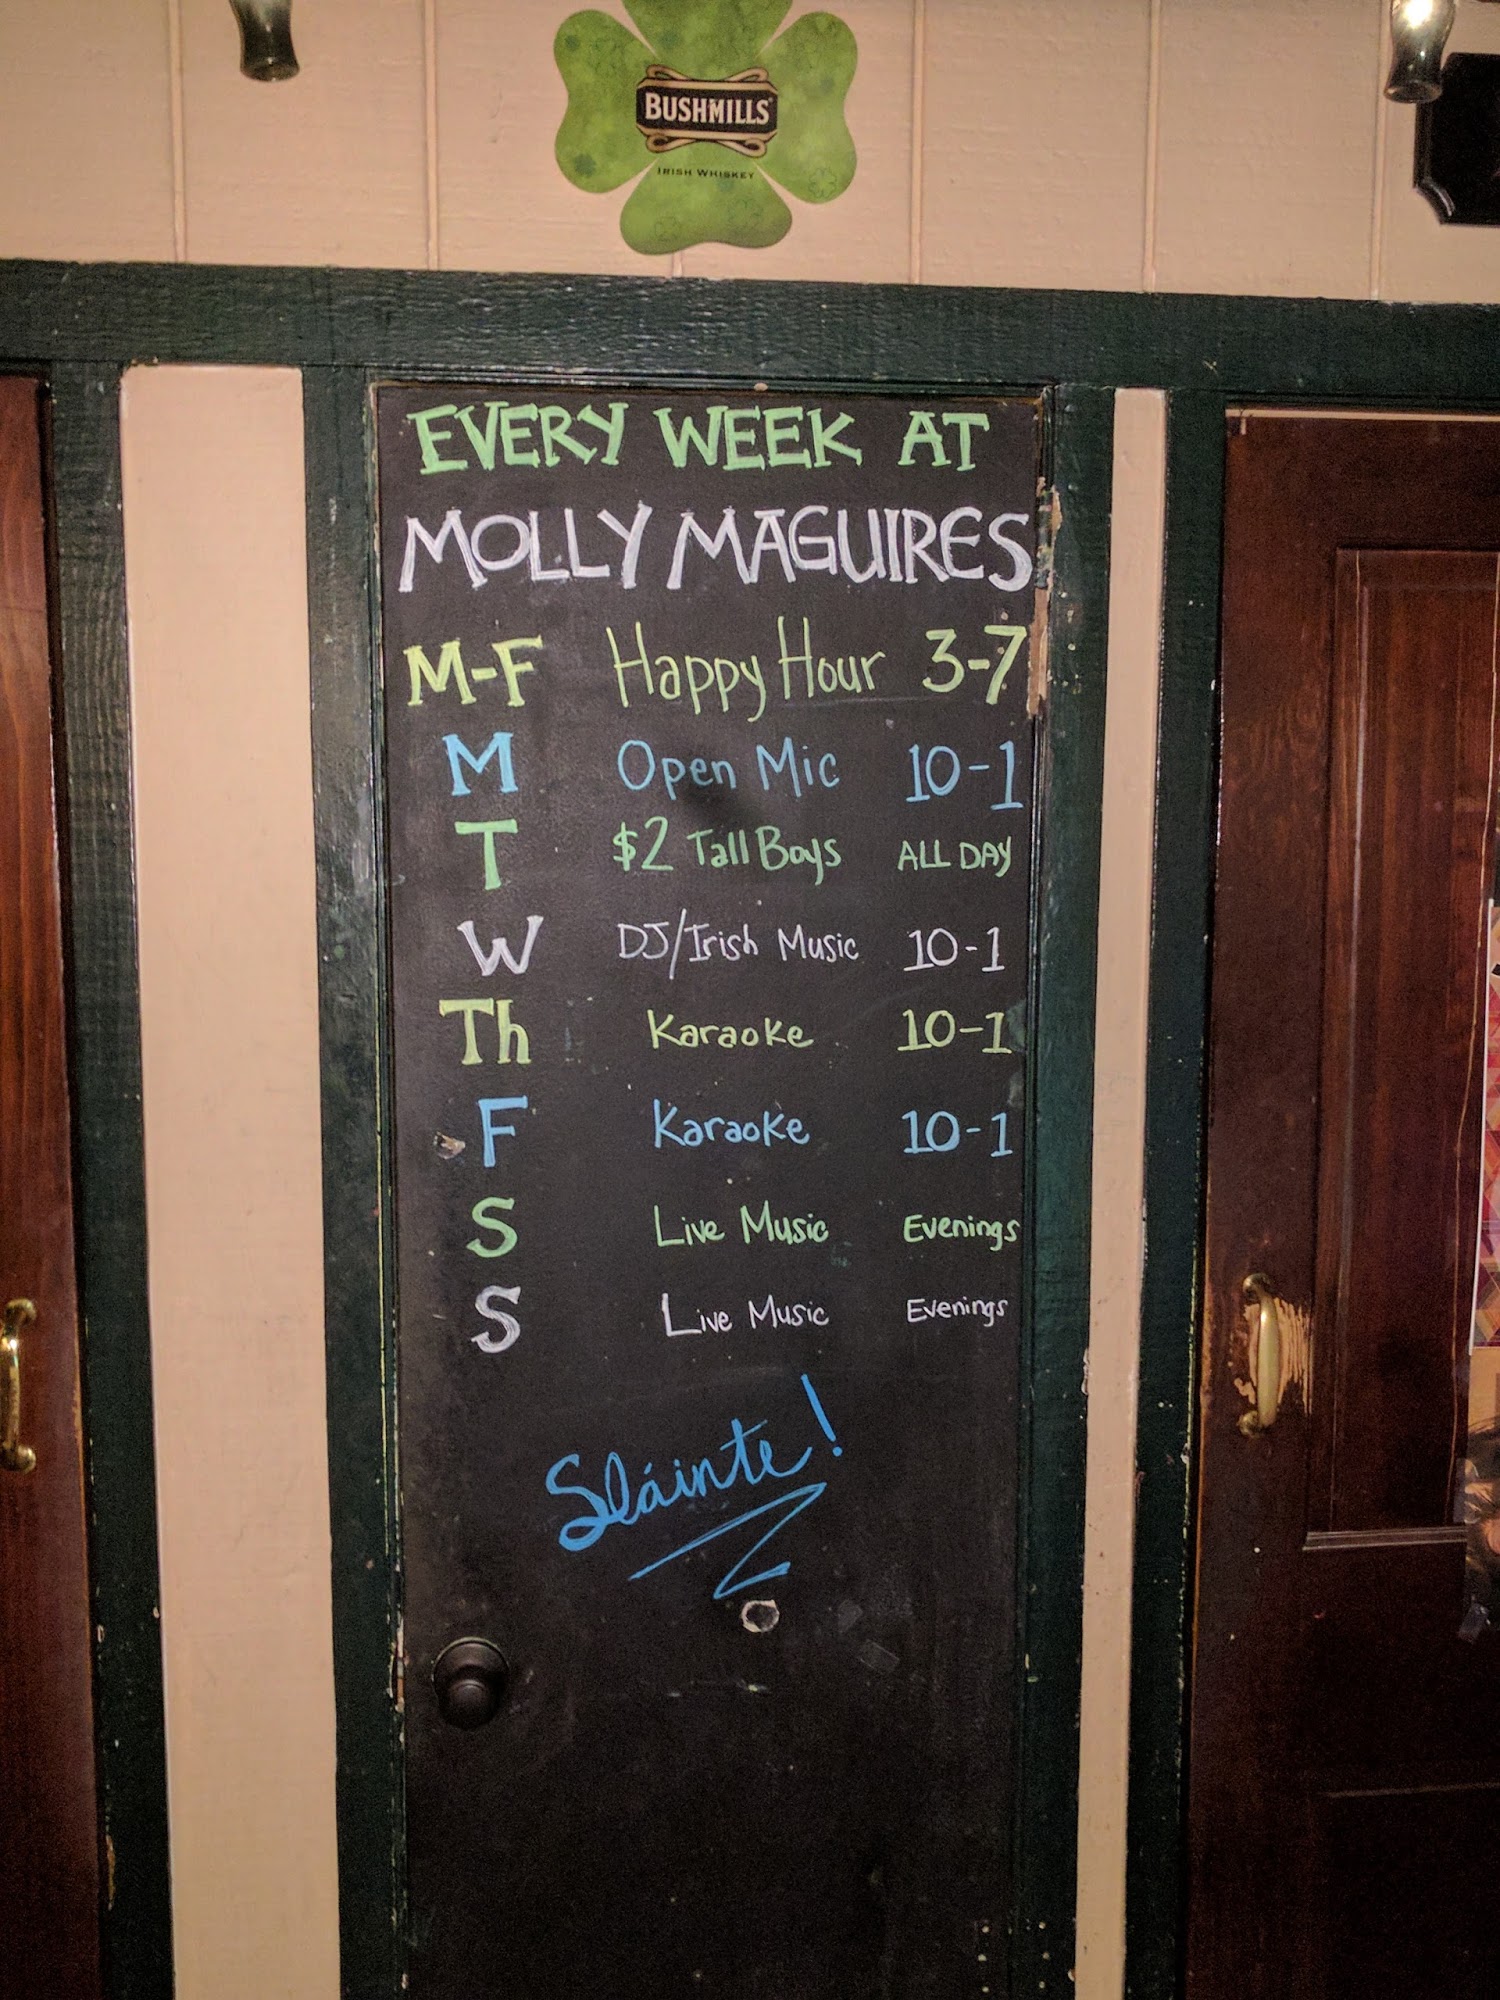 BUSHMILLS
IRISH WHISKEY
EVERY WEEK AT
MOLLY MAGUIRES
M-F Happy Hour 3-7
M Open Mic 10-1
T $2 Tall Boys ALL DAY
W DJ/Irish Music 10-1
Th Karaoke 10-1
F Karaoke 10-1
S Live Music Evenings
S Live Music Evenings
Sláinte!